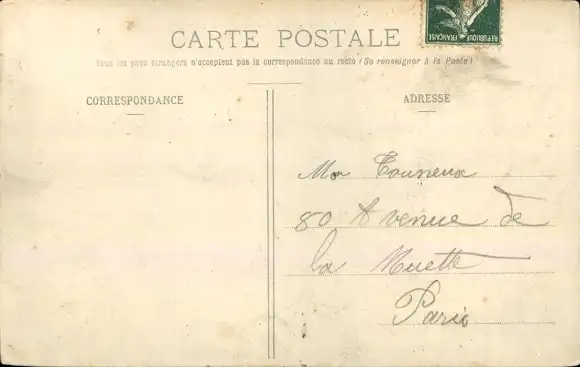 CARTE POSTALE
Tous les pays étrangers n'acceptent pas la correspondance au recto (Se renseigner à la Poste)
CORRESPONDANCE
ADRESSE
Mr Tourneux
80 Avenue de
la Muette
Paris
REPUBLIQUE FRANÇAISE